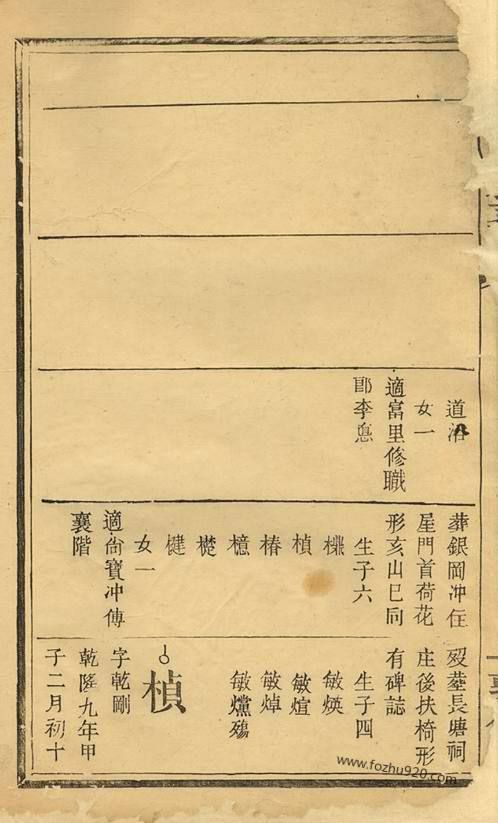 道
女一
適富里修職
郎李
葬銀岡冲住
星門首荷花
形亥山巳向
生子六
樸
楨
椿
檍
楚
楗
女一
適尙寶冲傳
襄階
歿葬長塘祠
庄後扶椅形
有碑誌
生子四
敏煐
敏煊
敏焯
敏爣殤
楨
字乾剛
乾隆九年甲
子二月初十
www.fozhu920.com